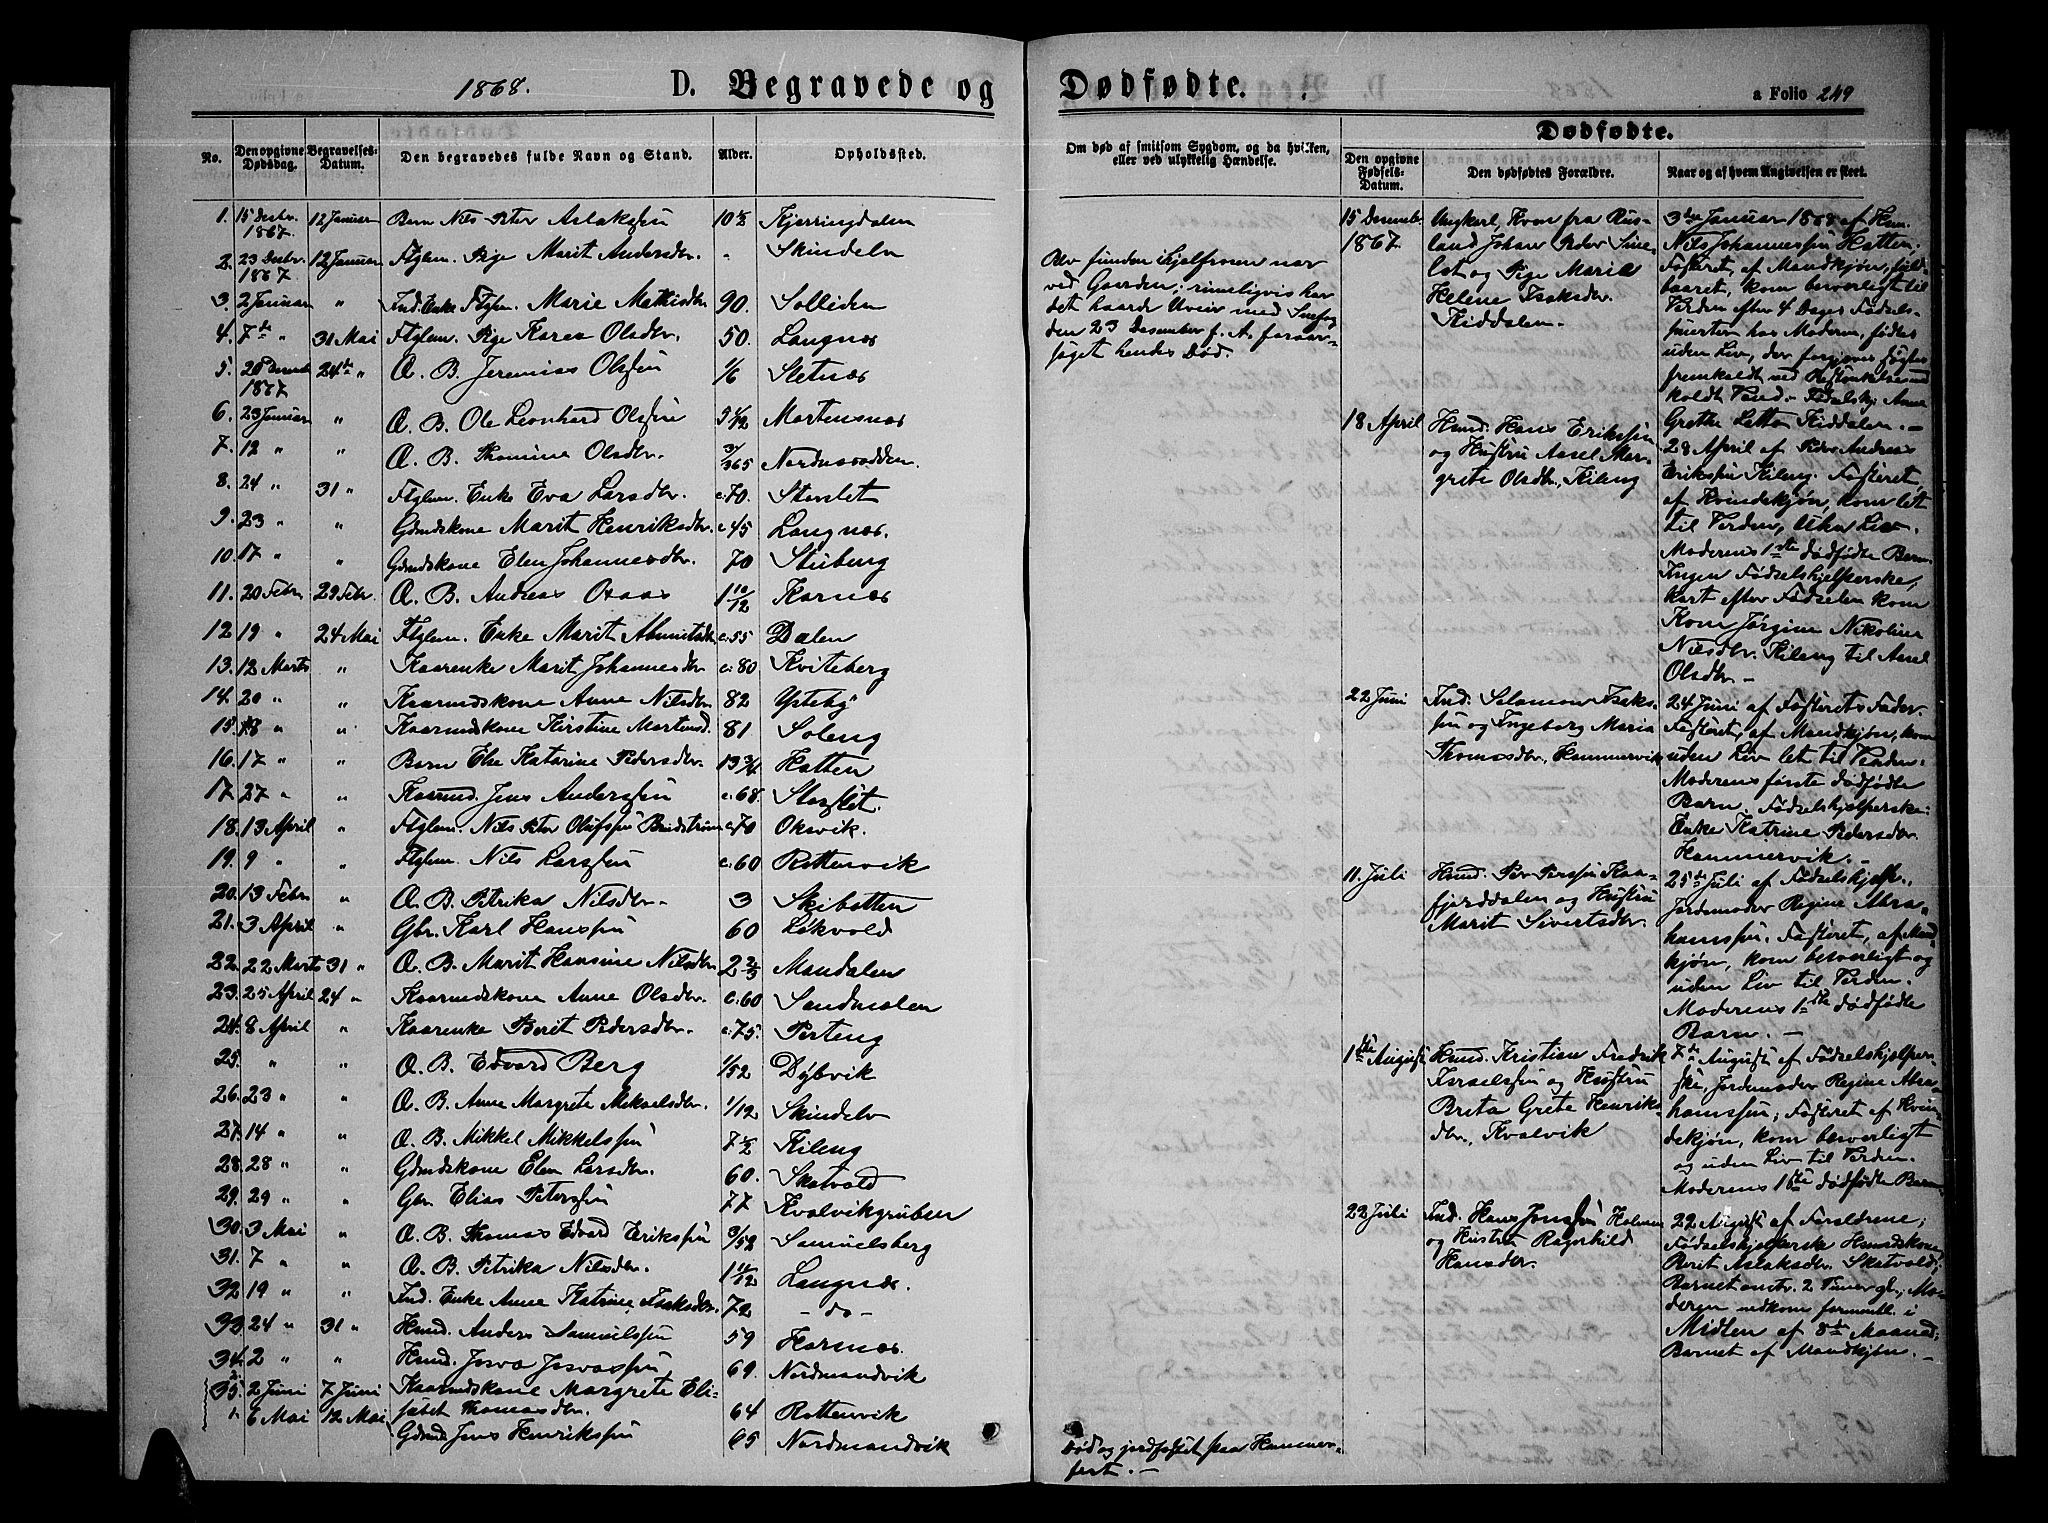 1868. D. Begravede og
No. Den opgivne Dødsdag. Begravelses-Datum. Den begravedes fulde Navn og Stand. Alder. Opholdssted.
1. 15 Desbr. 1867. 12 Januar Barn Nils Peter Aslaksen 10 1/2 Kjerringdalen
2. 23 Desbr. 1867 12 Januar Ftglem. Pige Marit Andersdtr. " Skindelv
3. 2 Januar " Ind. Enke Ftglem. Marie Mathisdtr 90. Solliden
4. 7de " 31 Mai Ftglem. Pige Karen Olsdtr. 50. Langnæs
5. 1867 24de " Æ. B. Jeremias Olsen 1/6 Sletnæs
6. 23 Januar " Æ. B. Ole Leonhard Olsen Mortensnæs
7. 12 " " Æ. B. Thomine Olsdtr. 3/365 Nordnæsodden
8. 24 " 31 " Ftglem. Enke Eva Larsdtr. c. 70. Storslet
9. 23 " " Gdmdskone Marit Henriksdtr c. 45 Langnæs.
10. 17 " " Gdmdskone Elen Johannesdtr. 70 Stubeng
11. 20 Febr 29 Febr. Æ. B. Andreas Baas 1 10/12 Karnæs
12. 19 " 24 Mai Ftglem. Enke Marit c. 55 Dalen
13. 12 Marts " Kaarenke Marit Johannesdtr c. 80 Kviteberg
14. 20 " " Kaarmdskone Anne Nilsdtr 82 Ysteby
15. 18 " " Kaarmdskone Kirstine Mortensd. 81 Soleng
16. 17 " " Barn Else Katarine Pedersdtr. 13 3/4 Hatten
17. 27 " " Kaarmd. Jens Anderssen c. 68. Storslet.
18. 13 April " Ftglem. Nils Peter Olufsen c. 70 Oksvik.
19. 9 " " Ftglem. Nils Larssen c. 60 Rottenvik
20. 13 Febr " Æ. B. Petrika Nilsdtr. 3 Skibotten
21. 3 April " Gbr. Karl Hanssen 60 Løkvold
22. 22 Marts 31 " Æ. B. Marit Hansine Nilsdtr 2 2/3 Mandalen
23. 25 April 24 " Kaarmdskone Anne Olsdtr. c. 60 Sandmælen
24. 8 April " Kaarenke Berit Pedersdtr. c. 75. Perteng
25. " " Æ. B. Edvard Berg 1/52 Dybvik
26. 23 " " Æ. B. Anne Margrete Mikaelsdtr. 1/12 Skindelv
27. 14 " " Æ. B. Mikkel Mikkelssen 7 1/2 Kileng
28. 28 " " Gdmdskone Elen Larsdtr. 60. Skatvold
29. 29 " " Gbr. Elias Peterssen 77 Kvalvikgruben
30. 3 Mai " Æ. B. Thomas Edvard Erikssen 3/52 Samuelsberg
31. 7 " " Æ. B. Petrika Nilsdtr. 1 11/12 Langnæs.
32 19 " " Ind. Enke Anne Katrine Isaksdtr. 72 - do -
33. 24 " 31 " Hmd. Anders Samuelssen 59 Karnæs.
34. 2 " " Hmd. Josva Josvassen 69. Nordmandvik
35. 2 Juni 7 Juni Kaarmdskone Margrete Eli-
sabet Thomasdtr. 64 Rottenvik
1. 6 Mai 12 Mai Gdmd Jens Henrikssen 65 Nordmandvik
Dødfødte.
a Folio 249
Om død af smitsom Sygdom, og da hvilken, eller ved ulykkelig Hændelse.
Dødfødte.
Den opgivne Fødsels-Datum. Den dødfødtes Forældre. Naar og af hvem Angivelsen er skeet.
Blev funden ihjelfrosen nær
ved Gaarden; rimeligvis har
det haarde Uveir med Snefog
den 23 Desember f. A. foraar-
saget hendes Død.
Død og jordfæstet paa Hammer-
fest. -
15 Desember 1867.
Ungkarl, Kvæn fra Rus-
land Johan Peder
og Pige Maria
Helene Isaksdtr.
Kiddalen.
3die Januar 1868 af
Nils Johannessen Hatten.
Fosteret, af Mandkjøn, fuld-
baaret, kom besværligt til
Verden efter 4 Dages Fødsels-
smerter hos Moderen, fødtes
uden Liv,
Grethe Kiddalen. -
18 April
Hmd. Hans Erikssen
og Hustru Aasel Mar-
grete Olsdtr., Kileng
28 April af Peder Andreas
Erikssen Kileng. Fosteret,
af Kvindekjøn, kom let
til Verden, uden Liv.
Moderens 1ste dødfødte Barn.
Ingen Fødselshjelperske,
kort efter Fødselen kom
Kone Jørgine Nikoline
Nilsdtr. Kileng til Aasel
Olsdtr. -
22 Juni
Ind. Salamon Isaks-
sen og Ingeborg Maria
Thomasdtr., Hammervik
24 Juni af Fosterets Fader.
Fosteret, af Mandkjøn, kom
uden Liv let til Verden.
Moderens første dødfødte
Barn. Fødselshjelperske:
Enke Katrine Pedersdtr.
Hammervik. -
11. Juli
Hmd. Per Perssen Kaa-
fjorddalen og Hustru
Marit Sivertsdtr.
25de Juli af Fødselshjelp.,
Jordemoder Regine Abra-
hamssen. Fosteret, af Mand-
kjøn, kom besværligt og
uden Liv til Verden.
Moderens 1ste dødfødte
Barn. -
1ste August
Hmd. Kristian Fredrik
Israelssen og Hustru
Brita Grete Henriks-
dtr., Kvalvik
7de August af Fødselshjelper-
ske, Jordemoder Regine Abra-
hamssen; Fosteret af Kvin-
dekjøn, kom besværligt
og uden Liv til Verden.
Moderens 1ste dødfødte Barn
22 Juli
Ind. Hans Jonssen Holmen
og Hustru Ragnhild
Hansdtr.
22 August af Forældrene;
Fødselshjelperske Hmdskone
Berit Aslaksdtr. Skatvold;
Barnet omtr. 2 Timer gl.; Mo-
deren nedkom formentl. i
Midten af 8de Maaned;
Barnet af Mandkjøn. -